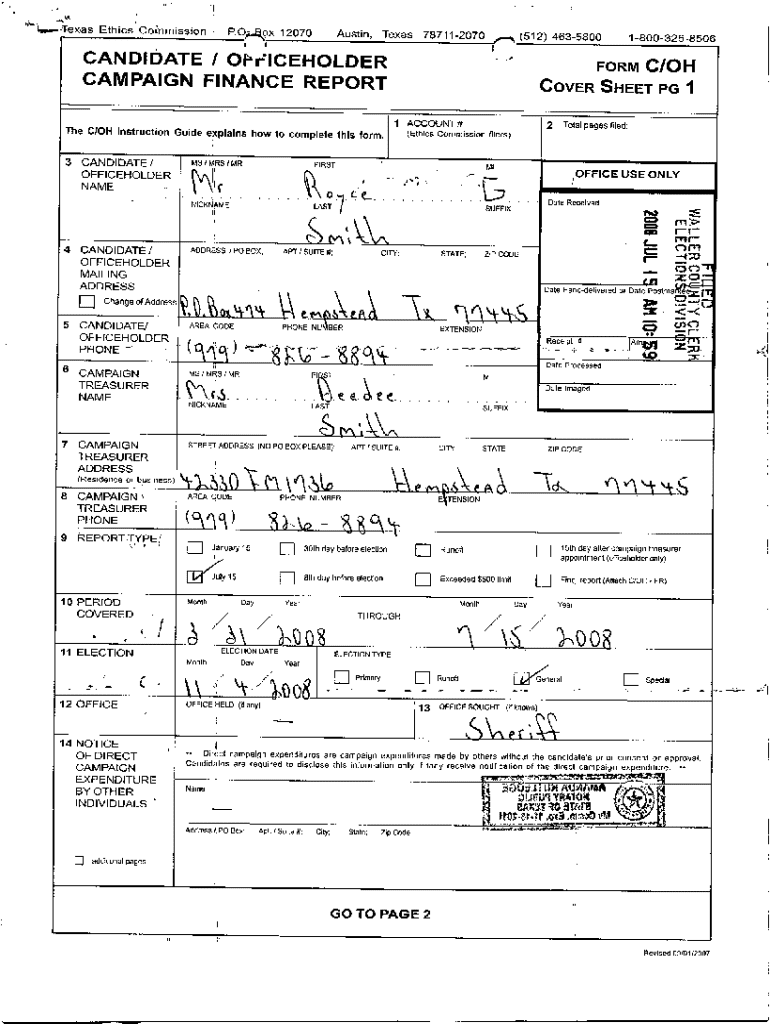 Texas Ethics Commission P.O. Box 12070 Austin, Texas 78711-2070 (512) 463-5800 1-800-325-8506
CANDIDATE / OFFICEHOLDER
CAMPAIGN FINANCE REPORT
FORM C/OH
COVER SHEET PG 1
The C/OH Instruction Guide explains how to complete this form.
1 ACCOUNT #
(Ethics Commission filers)
2 Total pages filed:
3 CANDIDATE / OFFICEHOLDER NAME
MS / MRS / MR FIRST MI
Mr Royce G
NICKNAME LAST SUFFIX
Smith
OFFICE USE ONLY
Date Received
FILED
WALLER COUNTY CLERK
ELECTIONS DIVISION
2008 JUL 15 AM 10:59
Date Hand-delivered or Date Postmarked
Receipt #
Date Processed
Date Imaged
4 CANDIDATE / OFFICEHOLDER MAILING ADDRESS
ADDRESS / PO BOX; APT / SUITE #; CITY; STATE; ZIP CODE
Change of Address
P.O. Box 474 Hempstead Tx 77445
5 CANDIDATE/ OFFICEHOLDER PHONE
AREA CODE PHONE NUMBER EXTENSION
(979) - 826-8894
6 CAMPAIGN TREASURER NAME
MS / MRS / MR FIRST MI
Mrs. Deedee
NICKNAME LAST SUFFIX
Smith
7 CAMPAIGN TREASURER ADDRESS
(Residence or business)
STREET ADDRESS (NO PO BOX PLEASE) APT / SUITE #; CITY STATE ZIP CODE
42330 FM 1736 Hempstead Tx 77445
8 CAMPAIGN TREASURER PHONE
AREA CODE PHONE NUMBER EXTENSION
(979) 826-8894
9 REPORT TYPE
January 15 30th day before election Runoff 15th day after campaign treasurer
appointment (officeholder only)
July 15 8th day before election Exceeded $500 limit Final report (Attach C/OH - FR)
10 PERIOD COVERED
Month Day Year THROUGH Month Day Year
2 / 21 / 2008 7 / 15 / 2008
11 ELECTION
ELECTION DATE
Month Day Year
11 / 4 / 2008
ELECTION TYPE
Primary Runoff General Special
12 OFFICE
OFFICE HELD (if any)
13 OFFICE SOUGHT (if known)
Sheriff
14 NOTICE OF DIRECT CAMPAIGN EXPENDITURE BY OTHER INDIVIDUALS
** Direct campaign expenditures are campaign expenditures made by others without the candidate's prior consent or approval.
Candidates are required to disclose this information only if they receive notification of the direct campaign expenditure. **
Name
AMANDA RUTLEDGE
NOTARY PUBLIC
STATE OF TEXAS
My Comm. Exp. 11-13-2011
Address / PO Box; Apt. / Suite #; City; State; Zip Code
additional pages
GO TO PAGE 2